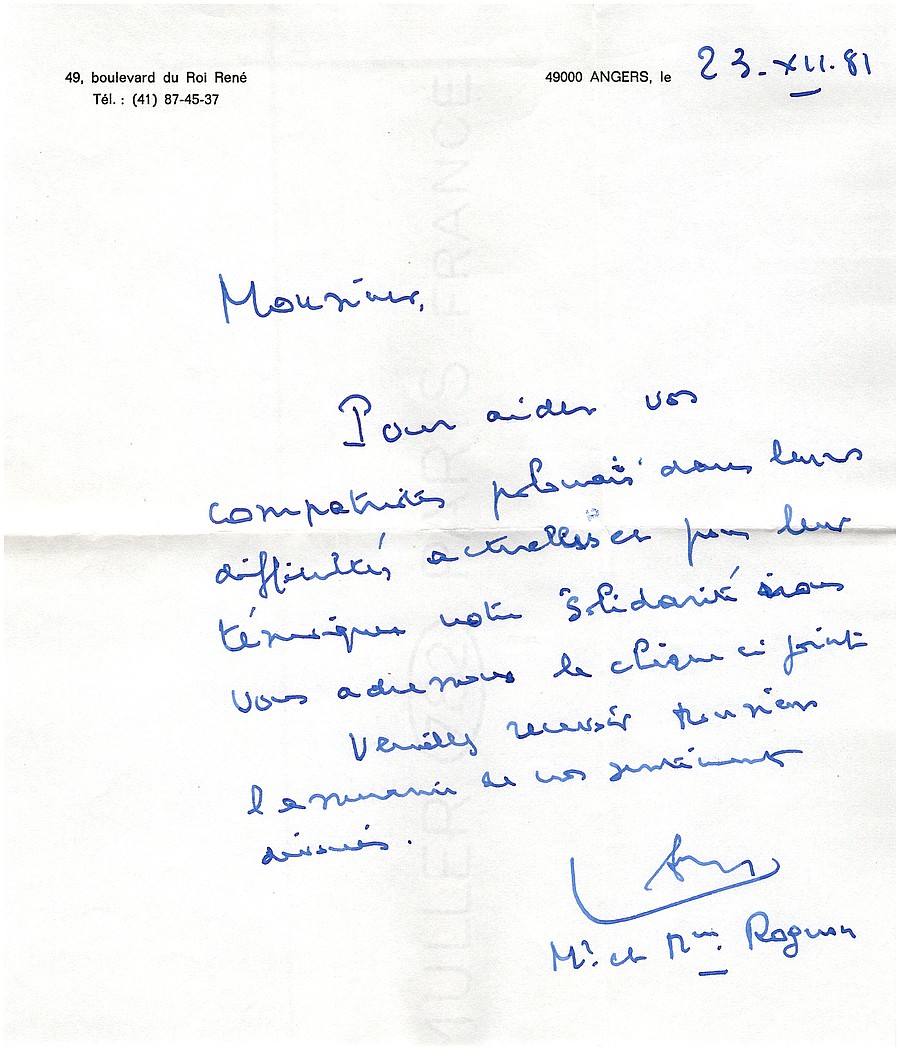 49, boulevard du Roi René
Tél. : (41) 87-45-37
49000 ANGERS, le 23-XII-81
Monsieur,
Pour aider vos
compatriotes polonais dans leurs
difficultés actuelles et pour leur
témoigner notre solidarité nous
vous adressons le chèque ci joint
Veuillez recevoir Monsieur
l'assurance de nos sentiments
dévoués.
Mr. et Mme. Rognon